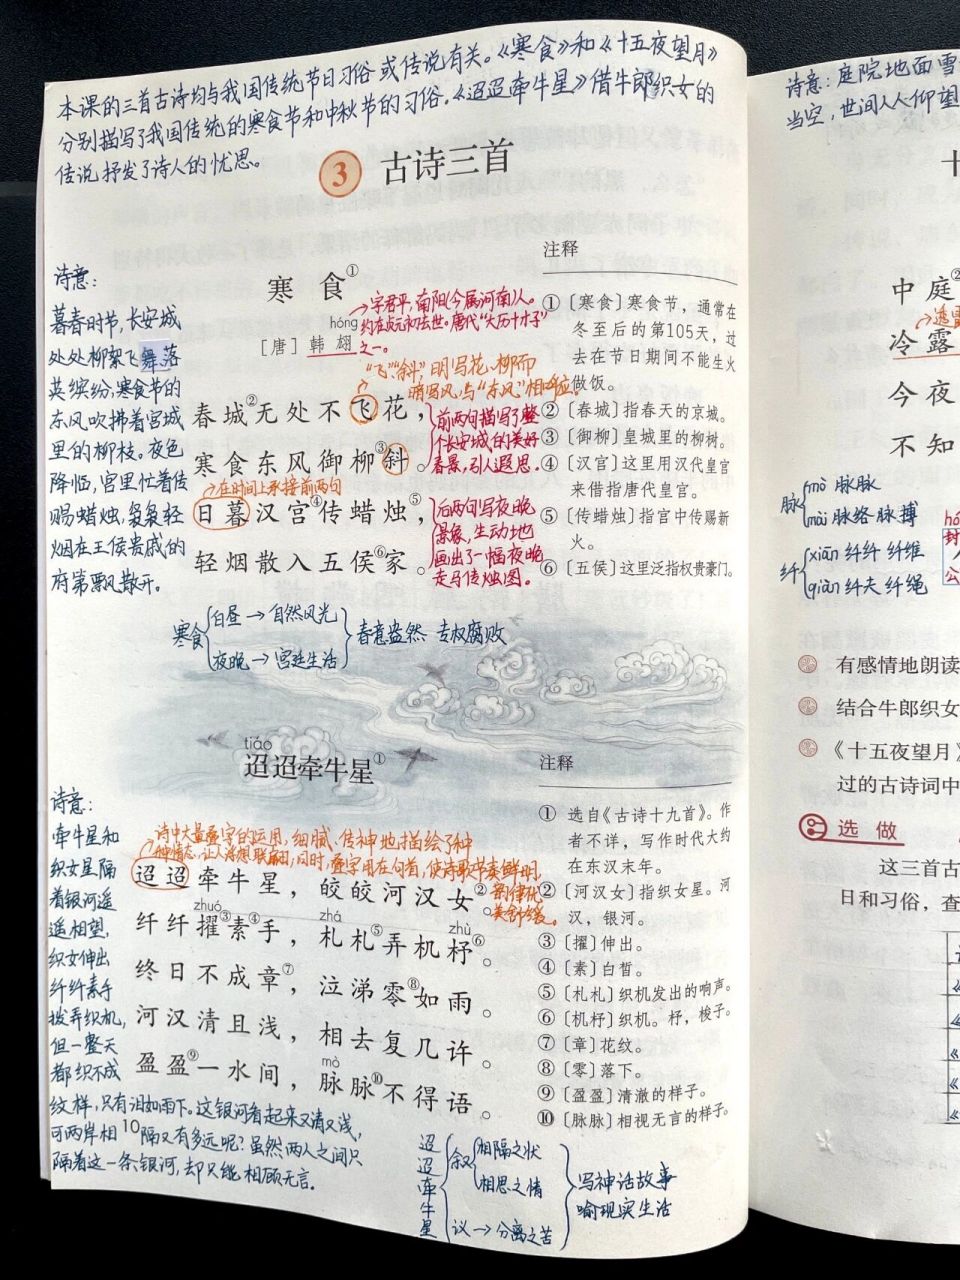 本课的三首古诗均与我国传统节日习俗或传说有关。《寒食》和《十五夜望月》
分别描写了我国传统的寒食节和中秋节的习俗。《迢迢牵牛星》借牛郎织女的
传说抒发了诗人的忧思。
3 古诗三首
诗意:
暮春时节,长安城
处处柳絮飞舞落
英缤纷,寒食节的
东风吹拂着宫城
里的柳枝。夜色
降临,宫里忙着传
赐蜡烛,袅袅轻
烟在王侯贵戚的
府第飘散开。
寒食①
hóng
[唐] 韩翃
字君平,南阳(今属河南)人。
约在贞元初去世。唐代“大历十才子”
之一。
“飞”“斜”明写花、柳而
暗写风,与“东风”相呼应。
春城②无处不飞花,
寒食东风御柳③斜。
在时间上承接前两句
日暮汉宫④传蜡烛⑤,
轻烟散入五侯⑥家。
前两句描写了整
个长安城的美好
春景,引人遐思。
后两句写夜晚
景象,生动地
画出了一幅夜晚
走马传烛图。
注释
①〔寒食〕寒食节,通常在
冬至后的第105天,过
去在节日期间不能生火
做饭。
②〔春城〕指春天的京城。
③〔御柳〕皇城里的柳树。
④〔汉宫〕这里用汉代皇宫
来借指唐代皇宫。
⑤〔传蜡烛〕指宫中传赐新
火。
⑥〔五侯〕这里泛指权贵豪门。
寒食 白昼→自然风光
夜晚→宫廷生活
春意盎然 专权腐败
tiáo
迢迢牵牛星①
诗意:
牵牛星和
织女星隔
着银河遥
遥相望,
织女伸出
纤纤素手
拨弄织机,
但一整天
都织不成
纹样,只有泪如雨下。这银河看起来又清又浅,
可两岸相隔又有多远呢?虽然两人之间只
隔着这一条银河,却只能相顾无言。
10
诗中大量叠字的运用,细腻、传神地描绘了种
种情态,让人浮想联翩;同时,叠字用在句首,使诗歌节奏鲜明,
韵律优
美舒缓。
迢迢牵牛星,皎皎河汉女②。
zhuó zhá zhù
纤纤擢③素④手,札札⑤弄机杼⑥。
终日不成章⑦,泣涕零⑧如雨。
河汉清且浅,相去复几许。
mò
盈盈⑨一水间,脉脉⑩不得语。
注释
① 选自《古诗十九首》。作
者不详,写作时代大约
在东汉末年。
②〔河汉女〕指织女星。河
汉,银河。
③〔擢〕伸出。
④〔素〕白皙。
⑤〔札札〕织机发出的响声。
⑥〔机杼〕织机。杼,梭子。
⑦〔章〕花纹。
⑧〔零〕落下。
⑨〔盈盈〕清澈的样子。
⑩〔脉脉〕相视无言的样子。
迢迢牵牛星
叙 相隔之状
相思之情
议→分离之苦
写神话故事
喻现实生活
诗意:庭院地面雪
当空,世间人人仰望
十
中庭②
冷露
今夜
不知
脉 mò 脉脉
mài 脉络 脉搏
纤 xiān 纤纤 纤维
qiàn 纤夫 纤绳
有感情地朗读
结合牛郎织女
《十五夜望月》
过的古诗词中
选做
这三首古
日和习俗,查